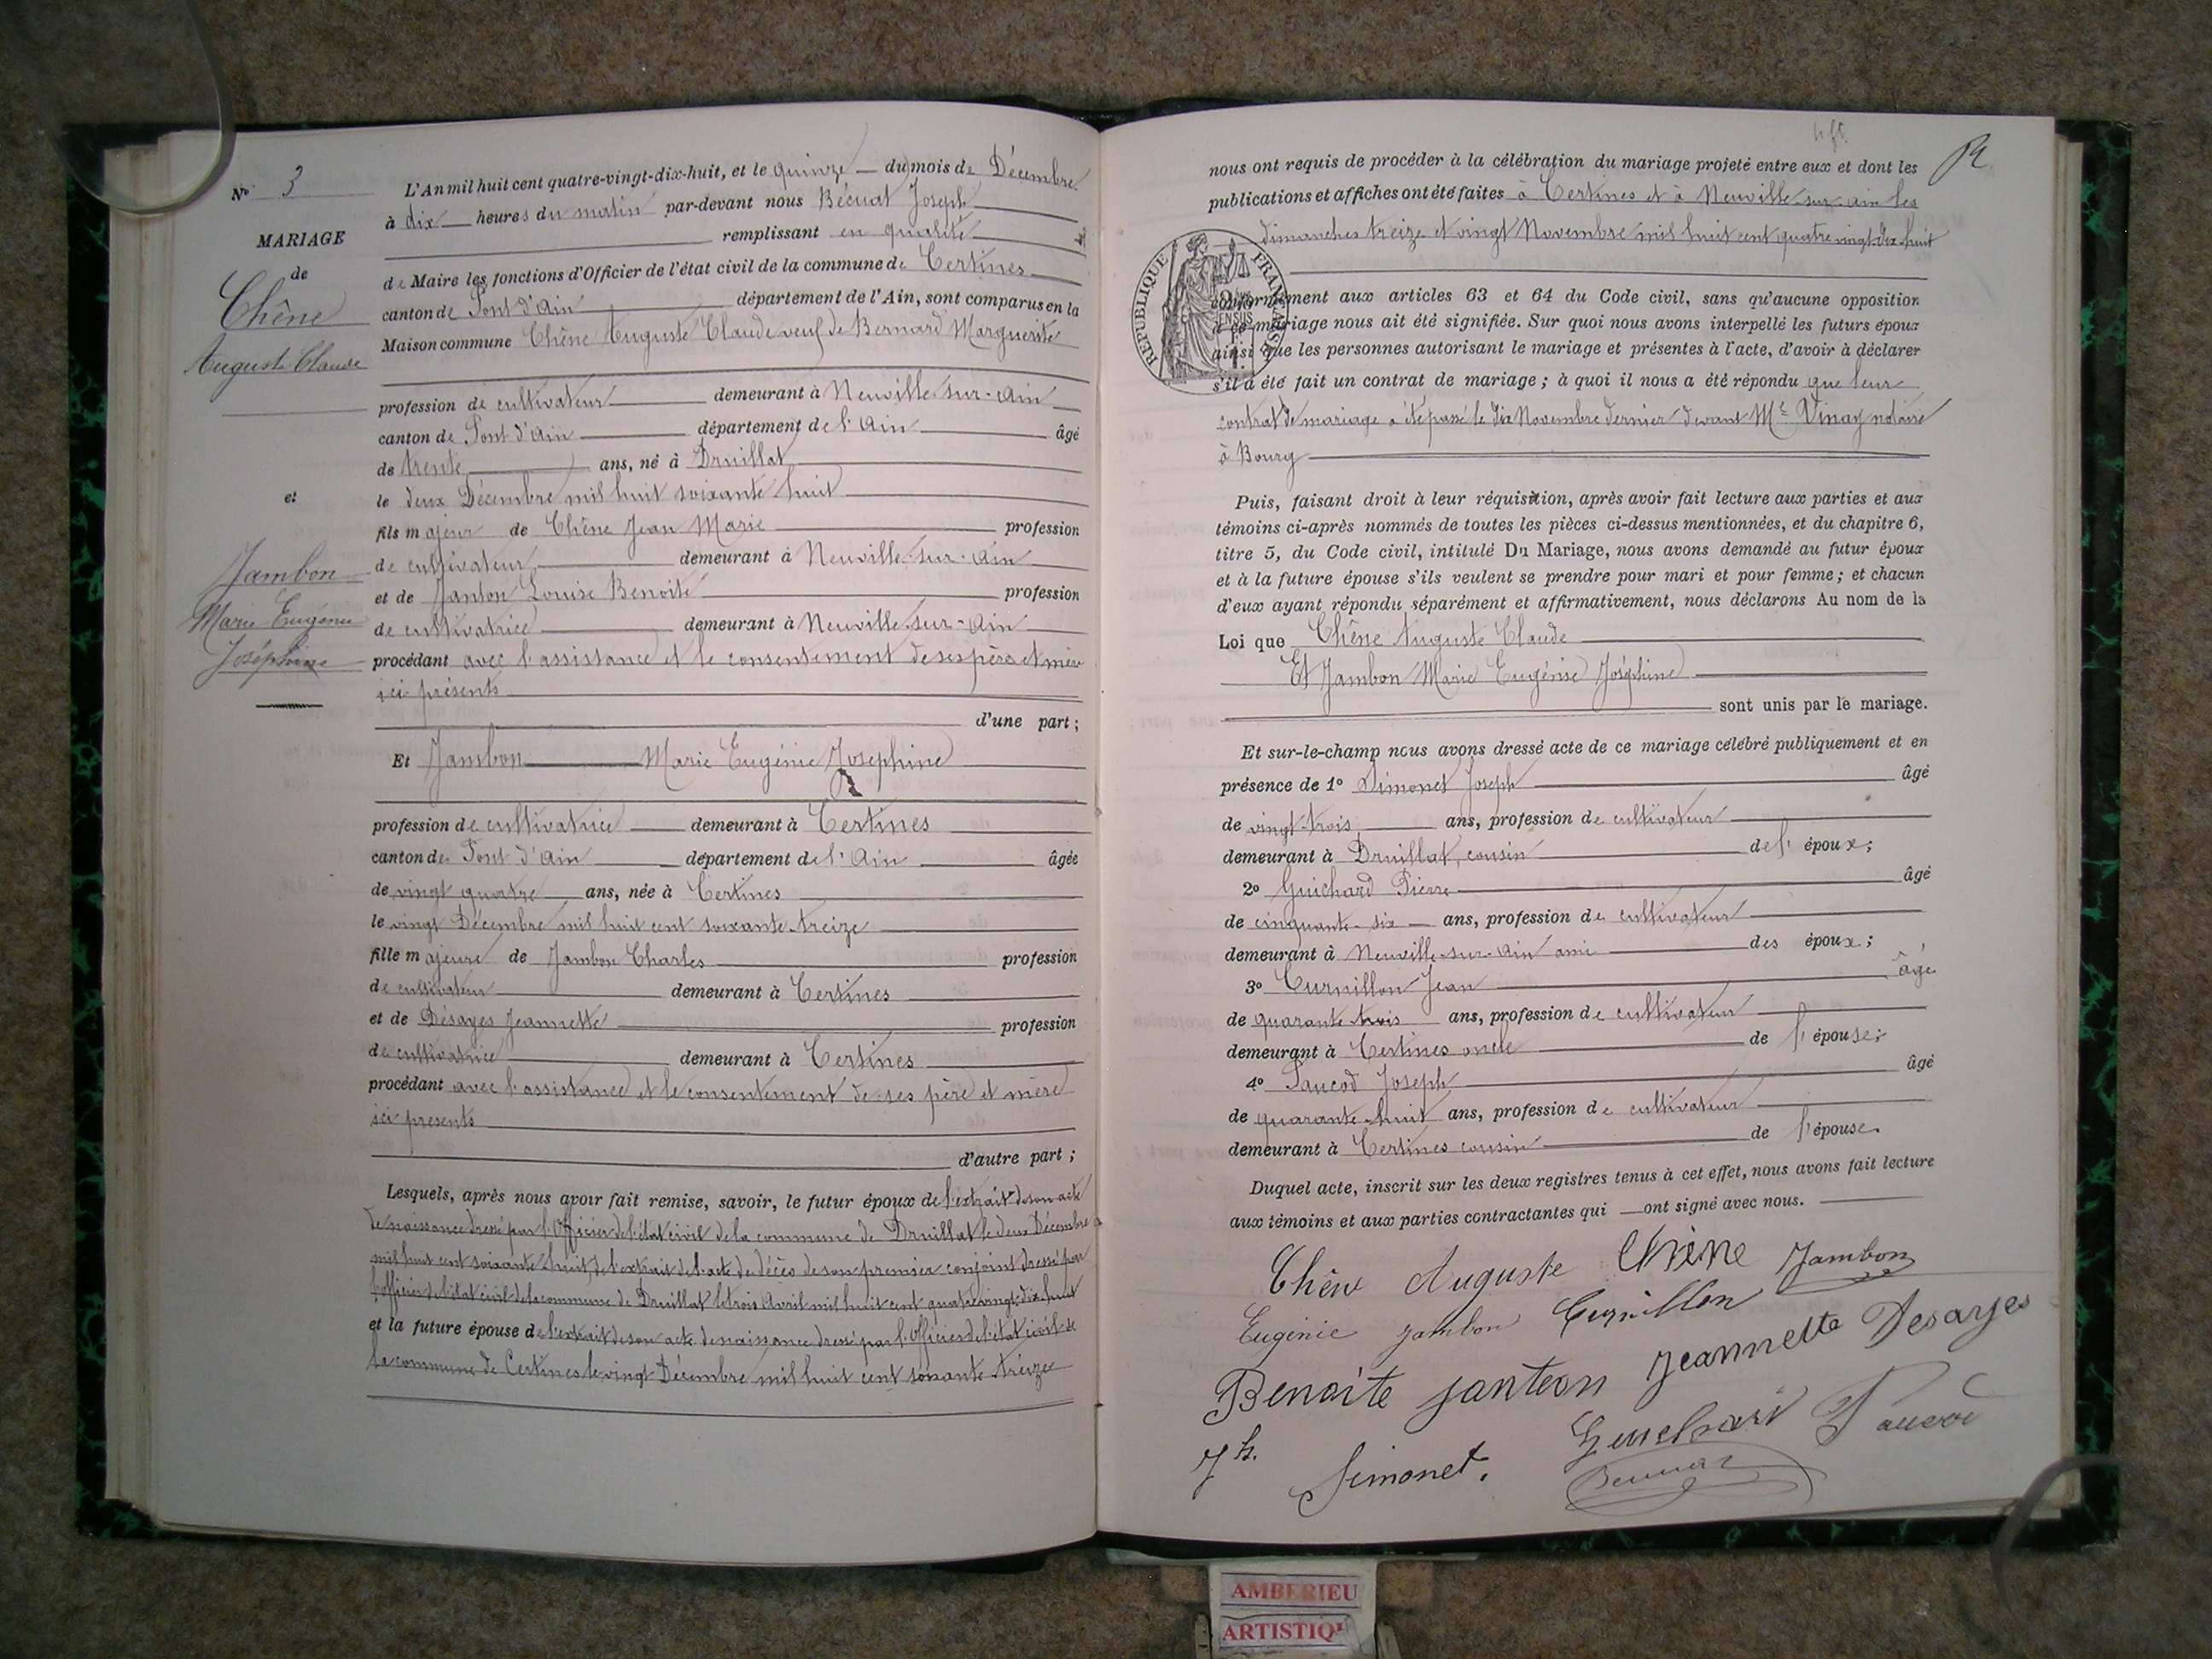 N° 3
MARIAGE
de
Chêne
Auguste Claude
et
Jambon
Marie Eugénie
Joséphine
L'An mil huit cent quatre-vingt-dix-huit, et le quinze du mois de Décembre
à dix heures du matin par-devant nous Bécuat Joseph
remplissant en qualité
de Maire les fonctions d'Officier de l'état civil de la commune de Certines
canton de Pont d'Ain département de l'Ain, sont comparus en la
Maison commune Chêne Auguste Claude veuf de Bernard Marguerite
profession de cultivateur demeurant à Neuville-sur-Ain
canton de Pont d'Ain département de l'Ain âgé
de trente ans, né à Druillat
le deux Décembre mil huit soixante huit
fils majeur de Chêne Jean Marie profession
de cultivateur demeurant à Neuville-sur-Ain
et de Janton Louise Benoite profession
de cultivatrice demeurant à Neuville-sur-Ain
procédant avec l'assistance et le consentement de ses père et mère
ici présents
d'une part ;
Et Jambon Marie Eugénie Joséphine
profession de cultivatrice demeurant à Certines
canton de Pont d'Ain département de l'Ain âgée
de vingt quatre ans, née à Certines
le vingt Décembre mil huit cent soixante-treize
fille majeure de Jambon Charles profession
de cultivateur demeurant à Certines
et de Désayes Jeannette profession
de cultivatrice demeurant à Certines
procédant avec l'assistance et le consentement de ses père et mère
ici présents
d'autre part ;
Lesquels, après nous avoir fait remise, savoir, le futur époux de l'extrait de son acte
de naissance dressé par l'Officier de l'état civil de la commune de Druillat le deux Décembre
mil huit cent soixante huit, de l'extrait de l'acte de décès de son premier conjoint dressé par
l'officier de l'état civil de la commune de Druillat le trois Avril mil huit cent quatre vingt dix huit
et la future épouse de l'extrait de son acte de naissance dressé par l'Officier de l'état civil de
la commune de Certines le vingt Décembre mil huit cent soixante treize
nous ont requis de procéder à la célébration du mariage projeté entre eux et dont les
publications et affiches ont été faites à Certines et à Neuville-sur-Ain les
dimanches treize et vingt Novembre mil huit cent quatre vingt-dix-huit
REPUBLIQUE FRANÇAISE
conformément aux articles 63 et 64 du Code civil, sans qu'aucune opposition
à ce mariage nous ait été signifiée. Sur quoi nous avons interpellé les futurs époux
ainsi que les personnes autorisant le mariage et présentes à l'acte, d'avoir à déclarer
s'il a été fait un contrat de mariage ; à quoi il nous a été répondu que leur
contrat de mariage a été passé le dix Novembre dernier devant Me Vinay notaire
à Bourg
Puis, faisant droit à leur réquisition, après avoir fait lecture aux parties et aux
témoins ci-après nommés de toutes les pièces ci-dessus mentionnées, et du chapitre 6,
titre 5, du Code civil, intitulé Du Mariage, nous avons demandé au futur époux
et à la future épouse s'ils veulent se prendre pour mari et pour femme ; et chacun
d'eux ayant répondu séparément et affirmativement, nous déclarons Au nom de la
Loi que Chêne Auguste Claude
Et Jambon Marie Eugénie Joséphine
sont unis par le mariage.
Et sur-le-champ nous avons dressé acte de ce mariage célébré publiquement et en
présence de 1° Simonet Joseph âgé
de vingt-trois ans, profession de cultivateur
demeurant à Druillat, cousin de l'époux ;
2° Guichard Pierre âgé
de cinquante-six ans, profession de cultivateur
demeurant à Neuville-sur-Ain ami des époux ;
3° Curnillon Jean âgé
de quarante trois ans, profession de cultivateur
demeurant à Certines oncle de l'épouse ;
4° Paucod Joseph âgé
de quarante-huit ans, profession de cultivateur
demeurant à Certines cousin de l'épouse.
Duquel acte, inscrit sur les deux registres tenus à cet effet, nous avons fait lecture
aux témoins et aux parties contractantes qui ont signé avec nous.
Chêne Auguste Chêne Jambon
Eugénie Jambon Curnillon
Benoite Janteon Jeannette Desayes
Jh. Simonet. Guichard Paucod
AMBERIEU
ARTISTIQ